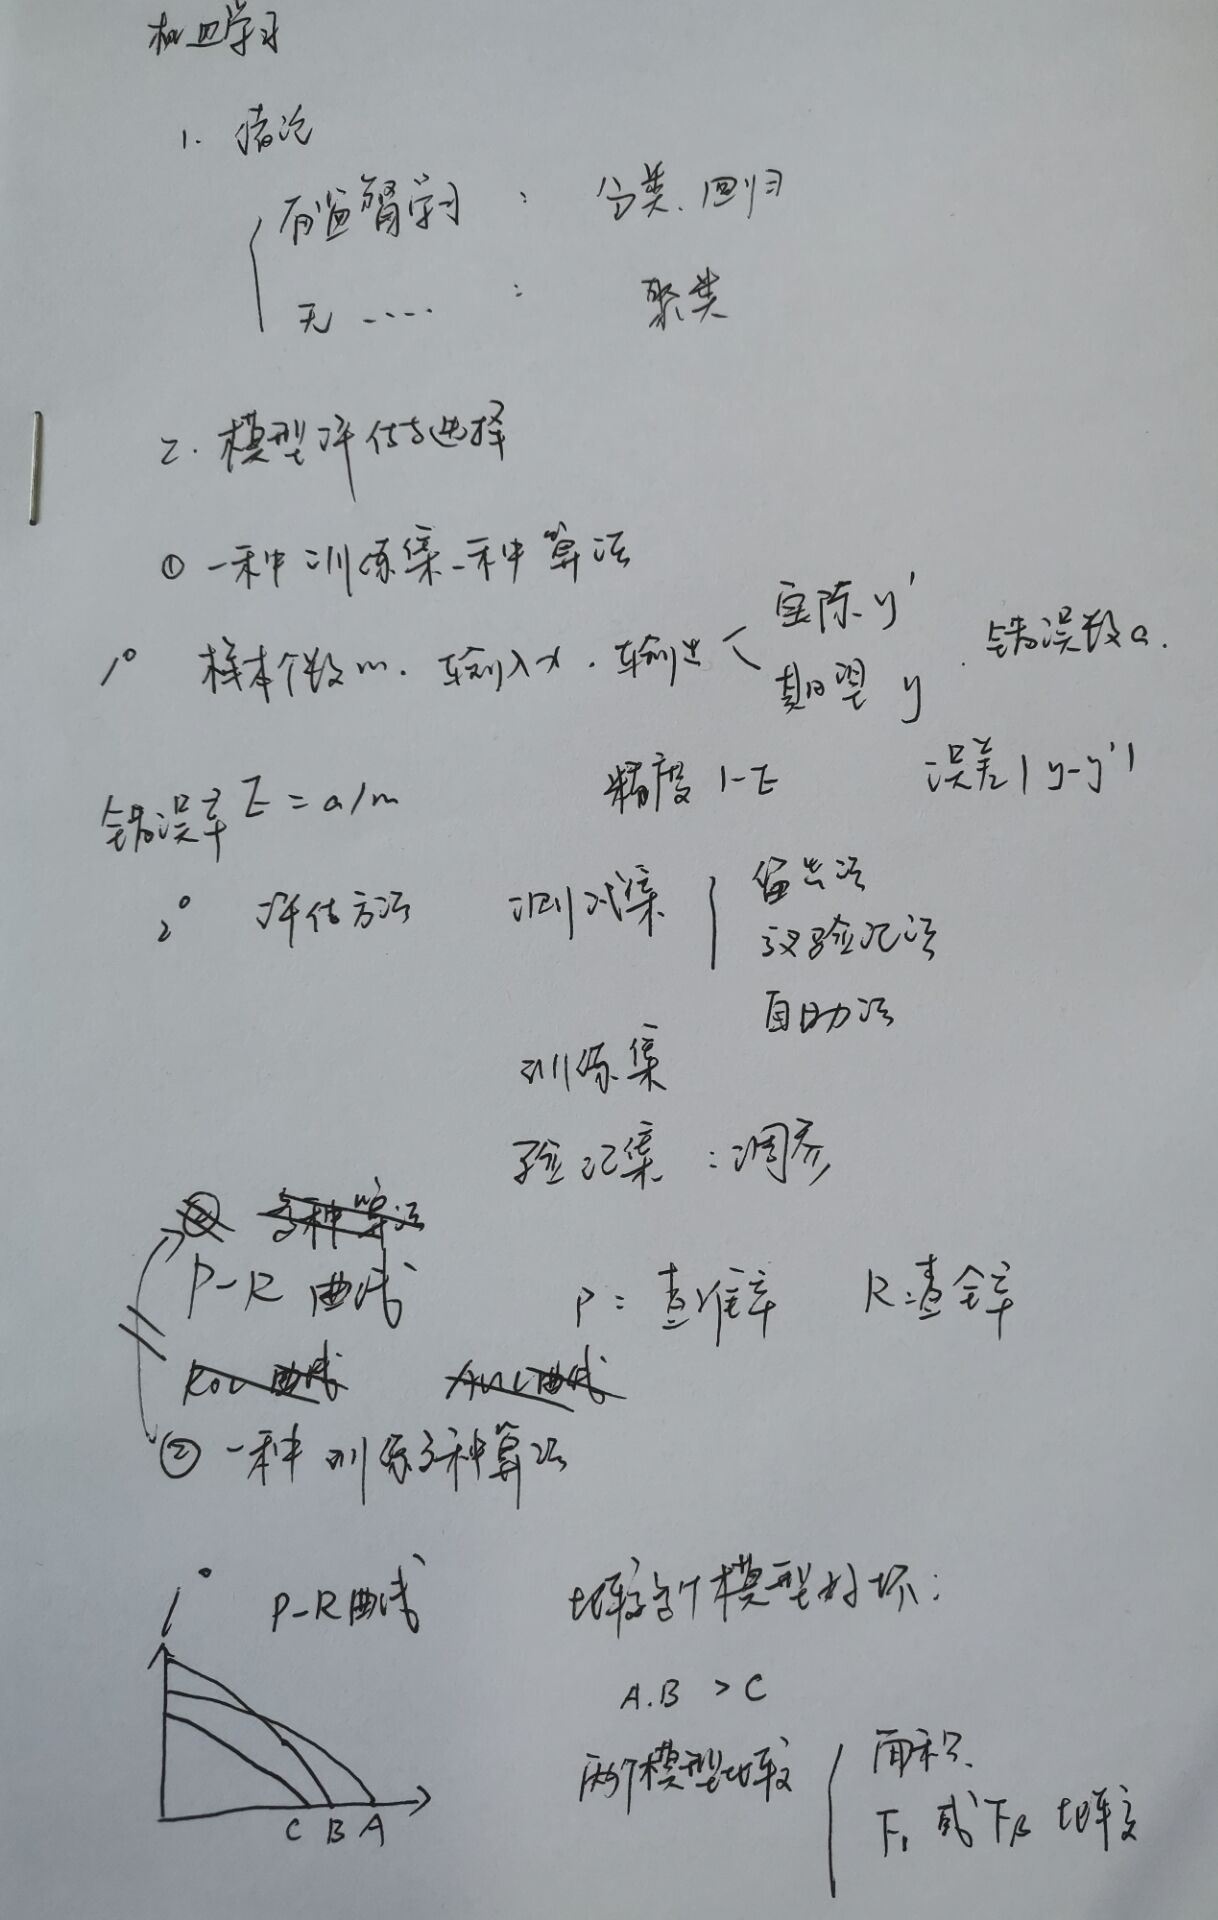 机四学习
1. 绪论
有监督学习 : 分类、回归
无 ···· : 聚类
2. 模型评估与选择
① 一种训练集一种算法
1° 样本个数m. 输入x. 输出 实际y' 期望y . 错误数a.
错误率E=a/m 精度 1-E 误差|y-y'|
2° 评估方法 测试集 留出法
交叉验证法
自助法
训练集
验证集 : 调参
② 多种算法
P-R 曲线 P: 查准率 R: 查全率
ROC 曲线 AUC曲线
② 一种训练多种算法
1° P-R曲线 比较各个模型好坏:
A.B > C
两个模型比较 面积.
F₁ 或 Fβ 比较
C B A